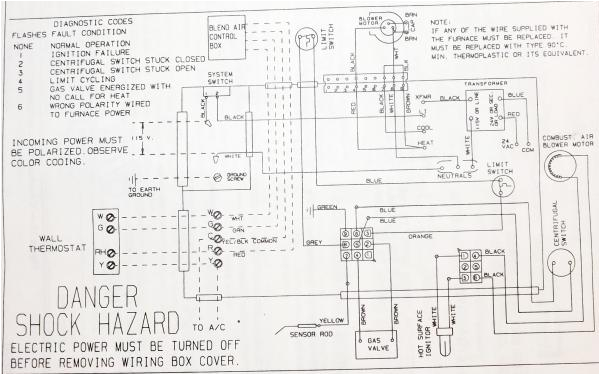 DIAGNOSTIC CODES
FLASHES FAULT CONDITION
NONE NORMAL OPERATION
1 IGNITION FAILURE
2 CENTRIFUGAL SWITCH STUCK CLOSED
3 CENTRIFUGAL SWITCH STUCK OPEN
4 LIMIT CYCLING
5 GAS VALVE ENERGIZED WITH
NO CALL FOR HEAT
6 WRONG POLARITY WIRED
TO FURNACE POWER
BLEND AIR
CONTROL
BOX
LIMIT
SWITCH
BLOWER
MOTOR
BRN
CAP
BRN
NOTE:
IF ANY OF THE WIRE SUPPLIED WITH
THE FURNACE MUST BE REPLACED. IT
MUST BE REPLACED WITH TYPE 90°C.
MIN. THERMOPLASTIC OR ITS EQUIVALENT.
SYSTEM
SWITCH
BLACK
BLACK
WHITE
INCOMING POWER MUST
BE POLARIZED.OBSERVE
COLOR CODING.
115 V.
TO EARTH
GROUND
GROUND
SCREW
BLACK
WHT
BLK
RED
BLACK
WHITE
RED
XFMR
LI
COOL
HEAT
BLACK
TRANSFORMER
115V OR LINE
24V OR SEC.
BLUE
RED
WHITE
24
VAC
COM
NEUTRALS
LIMIT
SWITCH
COMBUST. AIR
BLOWER MOTOR
BLUE
BLUE
CENTRIFUGAL
SWITCH
W
G
RH
Y
WALL
THERMOSTAT
W
G
C
R
Y
WHT
GRN
YEL/BLK COMMON
RED
TO A/C
GREEN
GREY
ORANGE
BLUE
BLACK
BLACK
BROWN
BROWN
WHITE
WHITE
YELLOW
SENSOR ROD
GAS
VALVE
HOT SURFACE
IGNITOR
DANGER
SHOCK HAZARD
ELECTRIC POWER MUST BE TURNED OFF
BEFORE REMOVING WIRING BOX COVER.